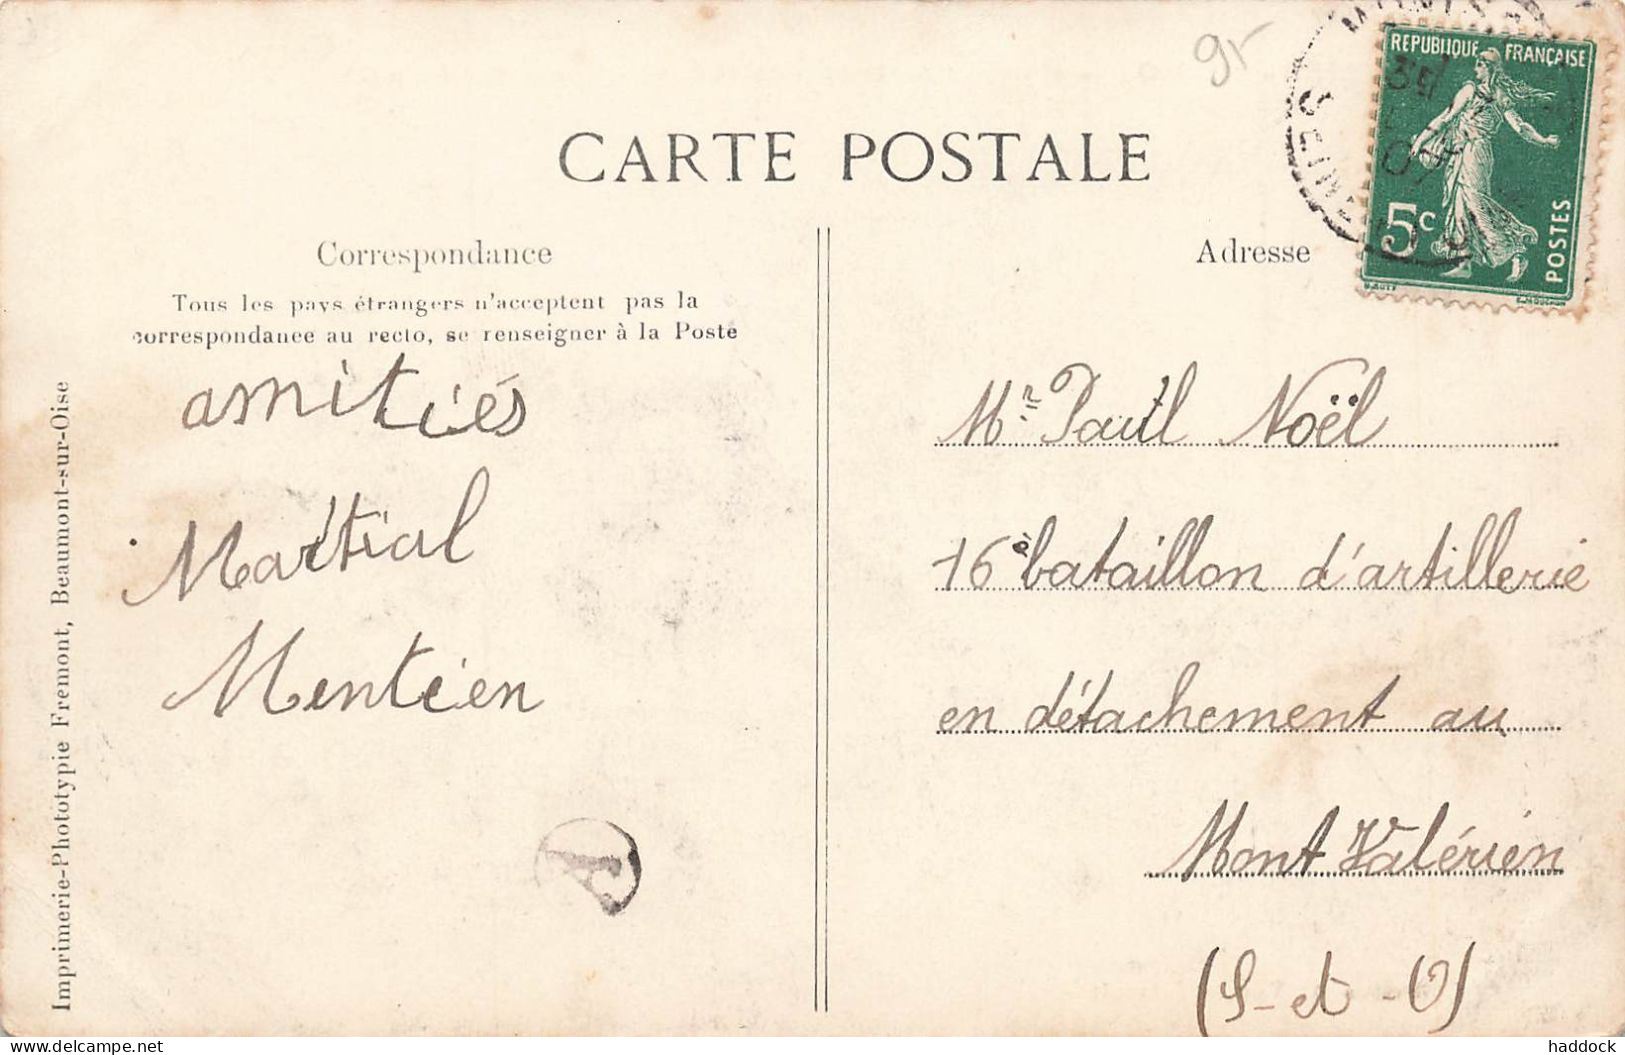 9F
CARTE POSTALE
Correspondance
Tous les pays étrangers n'acceptent pas la
correspondance au recto, se renseigner à la Poste
amitiés
Martial
Mentien
Imprimerie-Phototypie Fremont, Beaumont-sur-Oise
A
REPUBLIQUE FRANÇAISE
5c
POSTES
Adresse
Mr Paul Noël
16e bataillon d'artillerie
en détachement au
Mont Valérien
(S-et-O)
delcampe.net
haddock